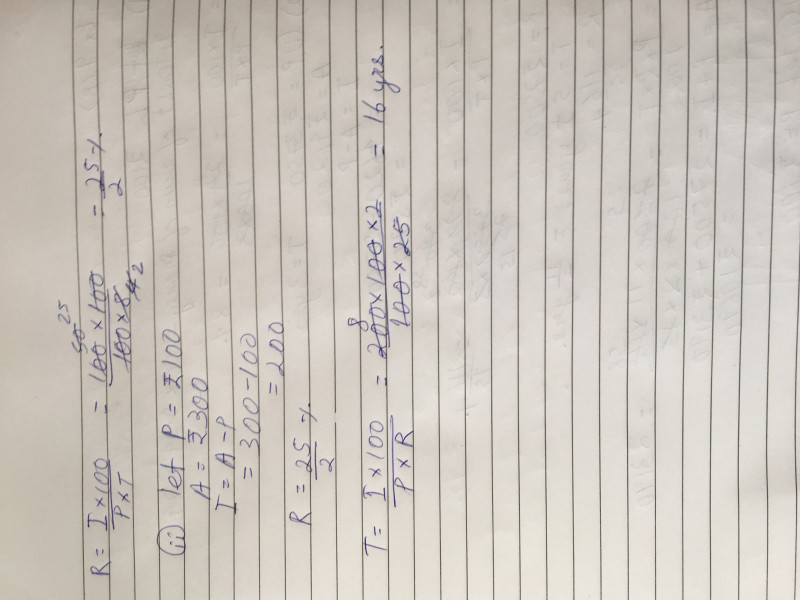 R = I × 100 / P × T = 100 × 100 / 100 × 8 = 25 / 2 %
50 25
4 2
(ii) let P = ₹100
A = ₹300
I = A - P
= 300 - 100
= 200
R = 25 / 2 %
T = I × 100 / P × R = 200 × 100 × 2 / 100 × 25 = 16 yrs.
8